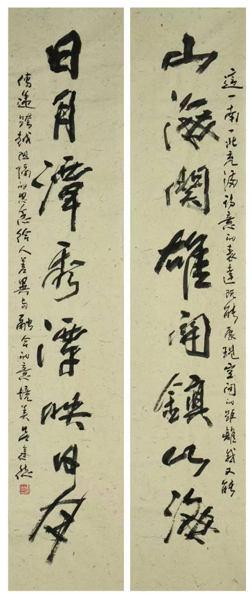 山海関雄関鎮山海
這一南一北充滿詩意的表達既能展現空間的距離感又能
日月潭秀潭映日月
傳遞跨越阻隔的思念給人差異与融合的意境美